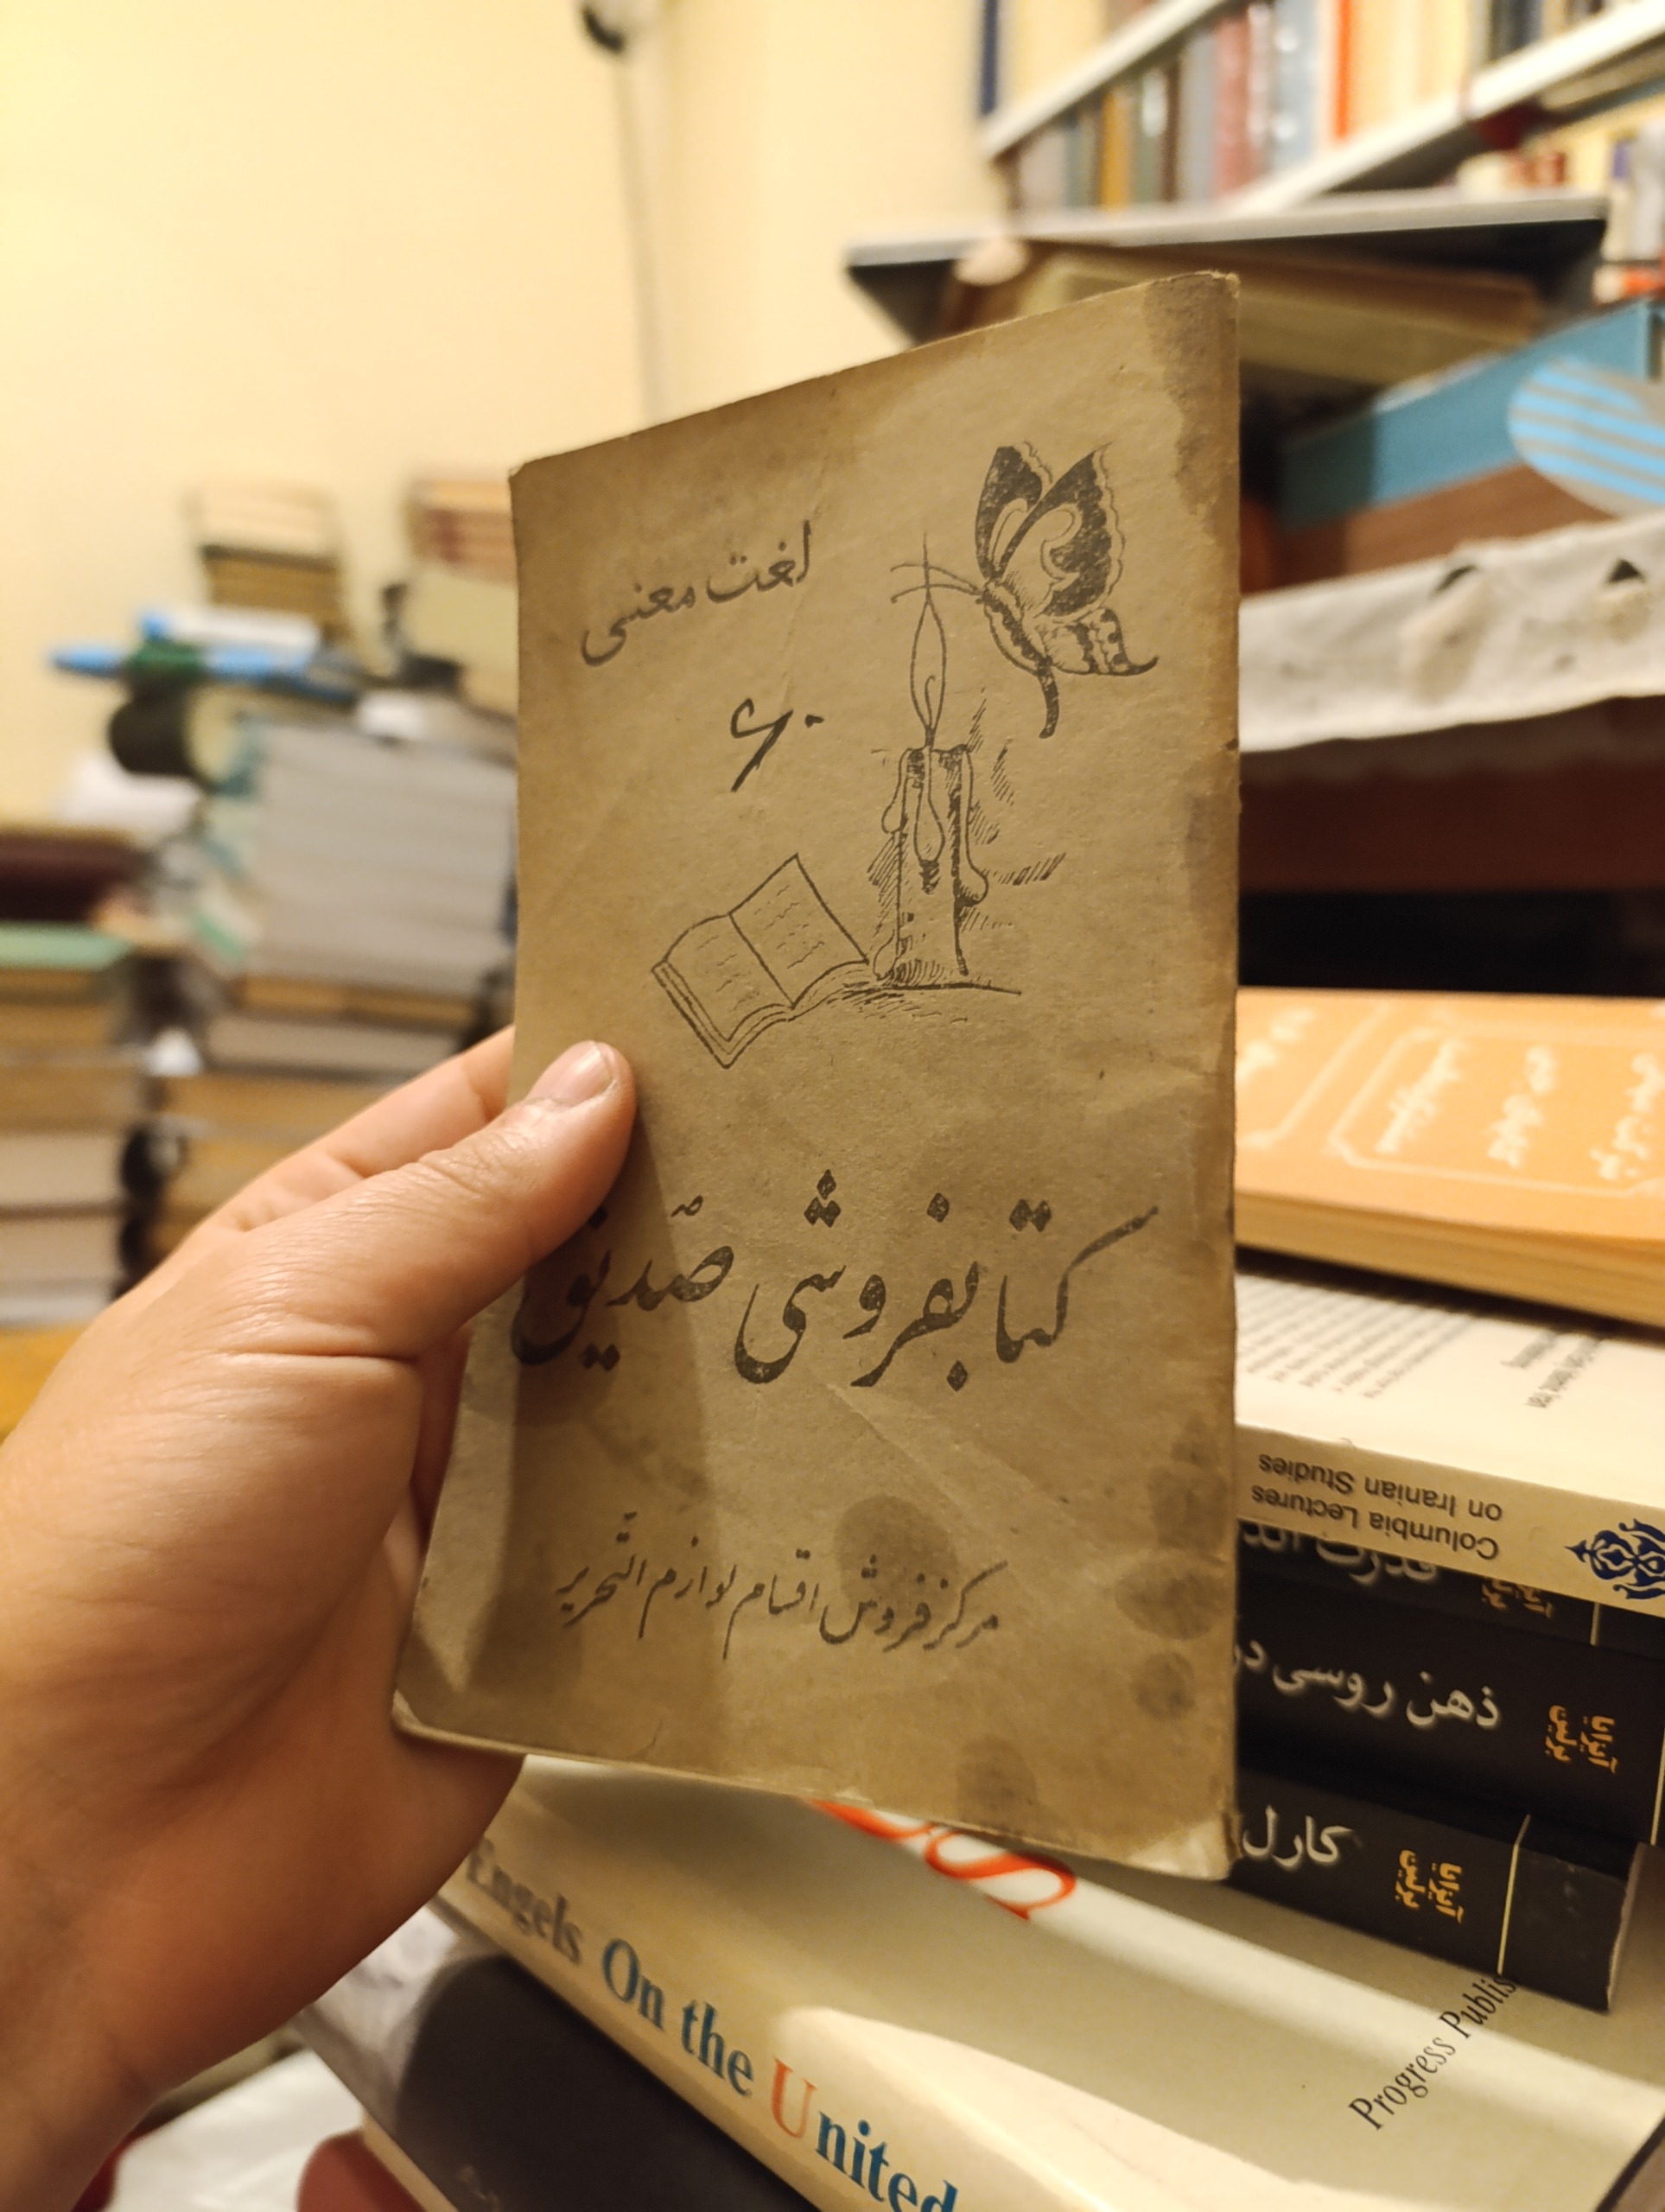 لغت معنی
۶۰
کتابفروشی صدیق
مرکز فروش اقسام لوازم التحریر
Columbia Lectures
on Iranian Studies
ذهن روسی در
کارل
Engels On the United
Progress Publis